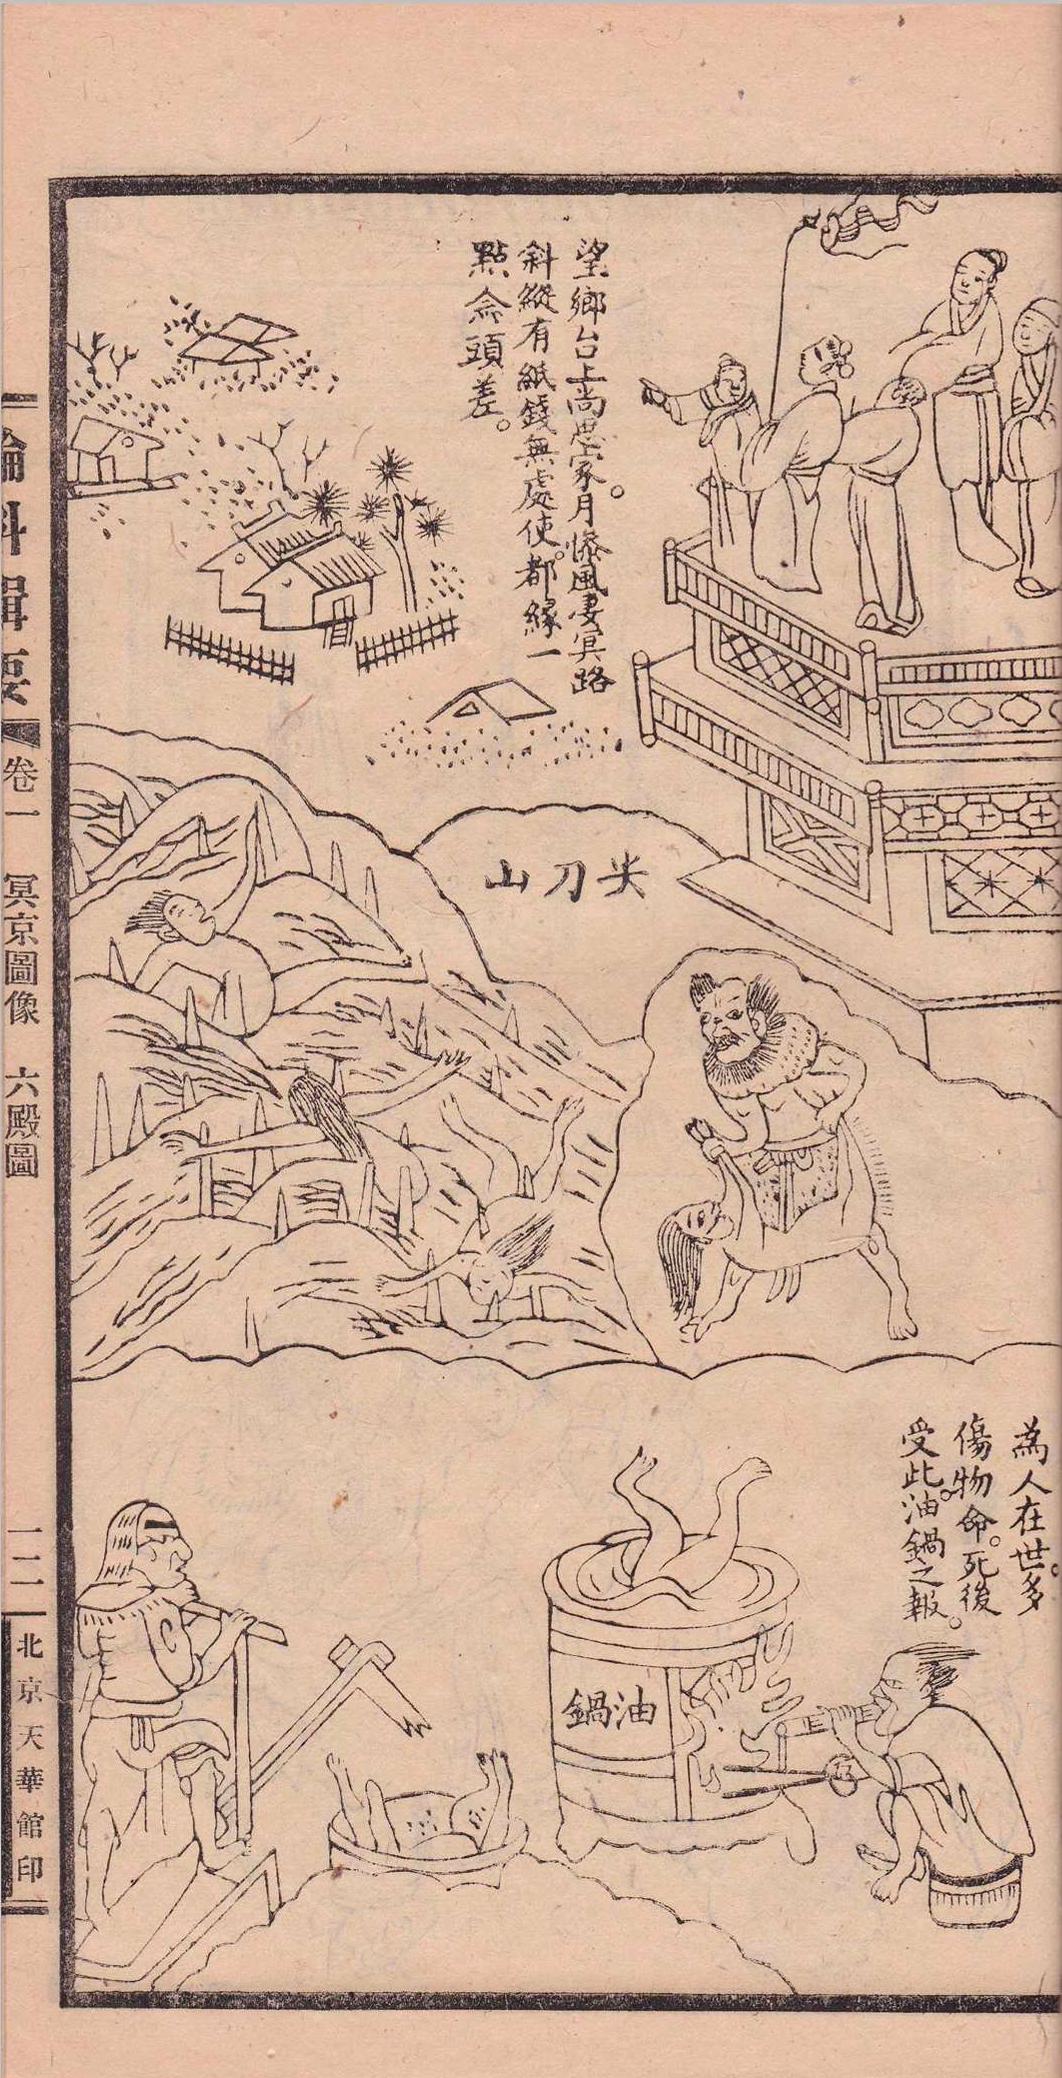 望鄉台上尚思家。月慘風淒冥路
斜縱有紙錢無處使。都緣一
點念頭差。
尖刀山
為人在世。多
傷物命。死後
受此。油鍋之報。
油鍋
輪科輯要
卷一
冥京圖像
六殿圖
一二一
北京天華館印